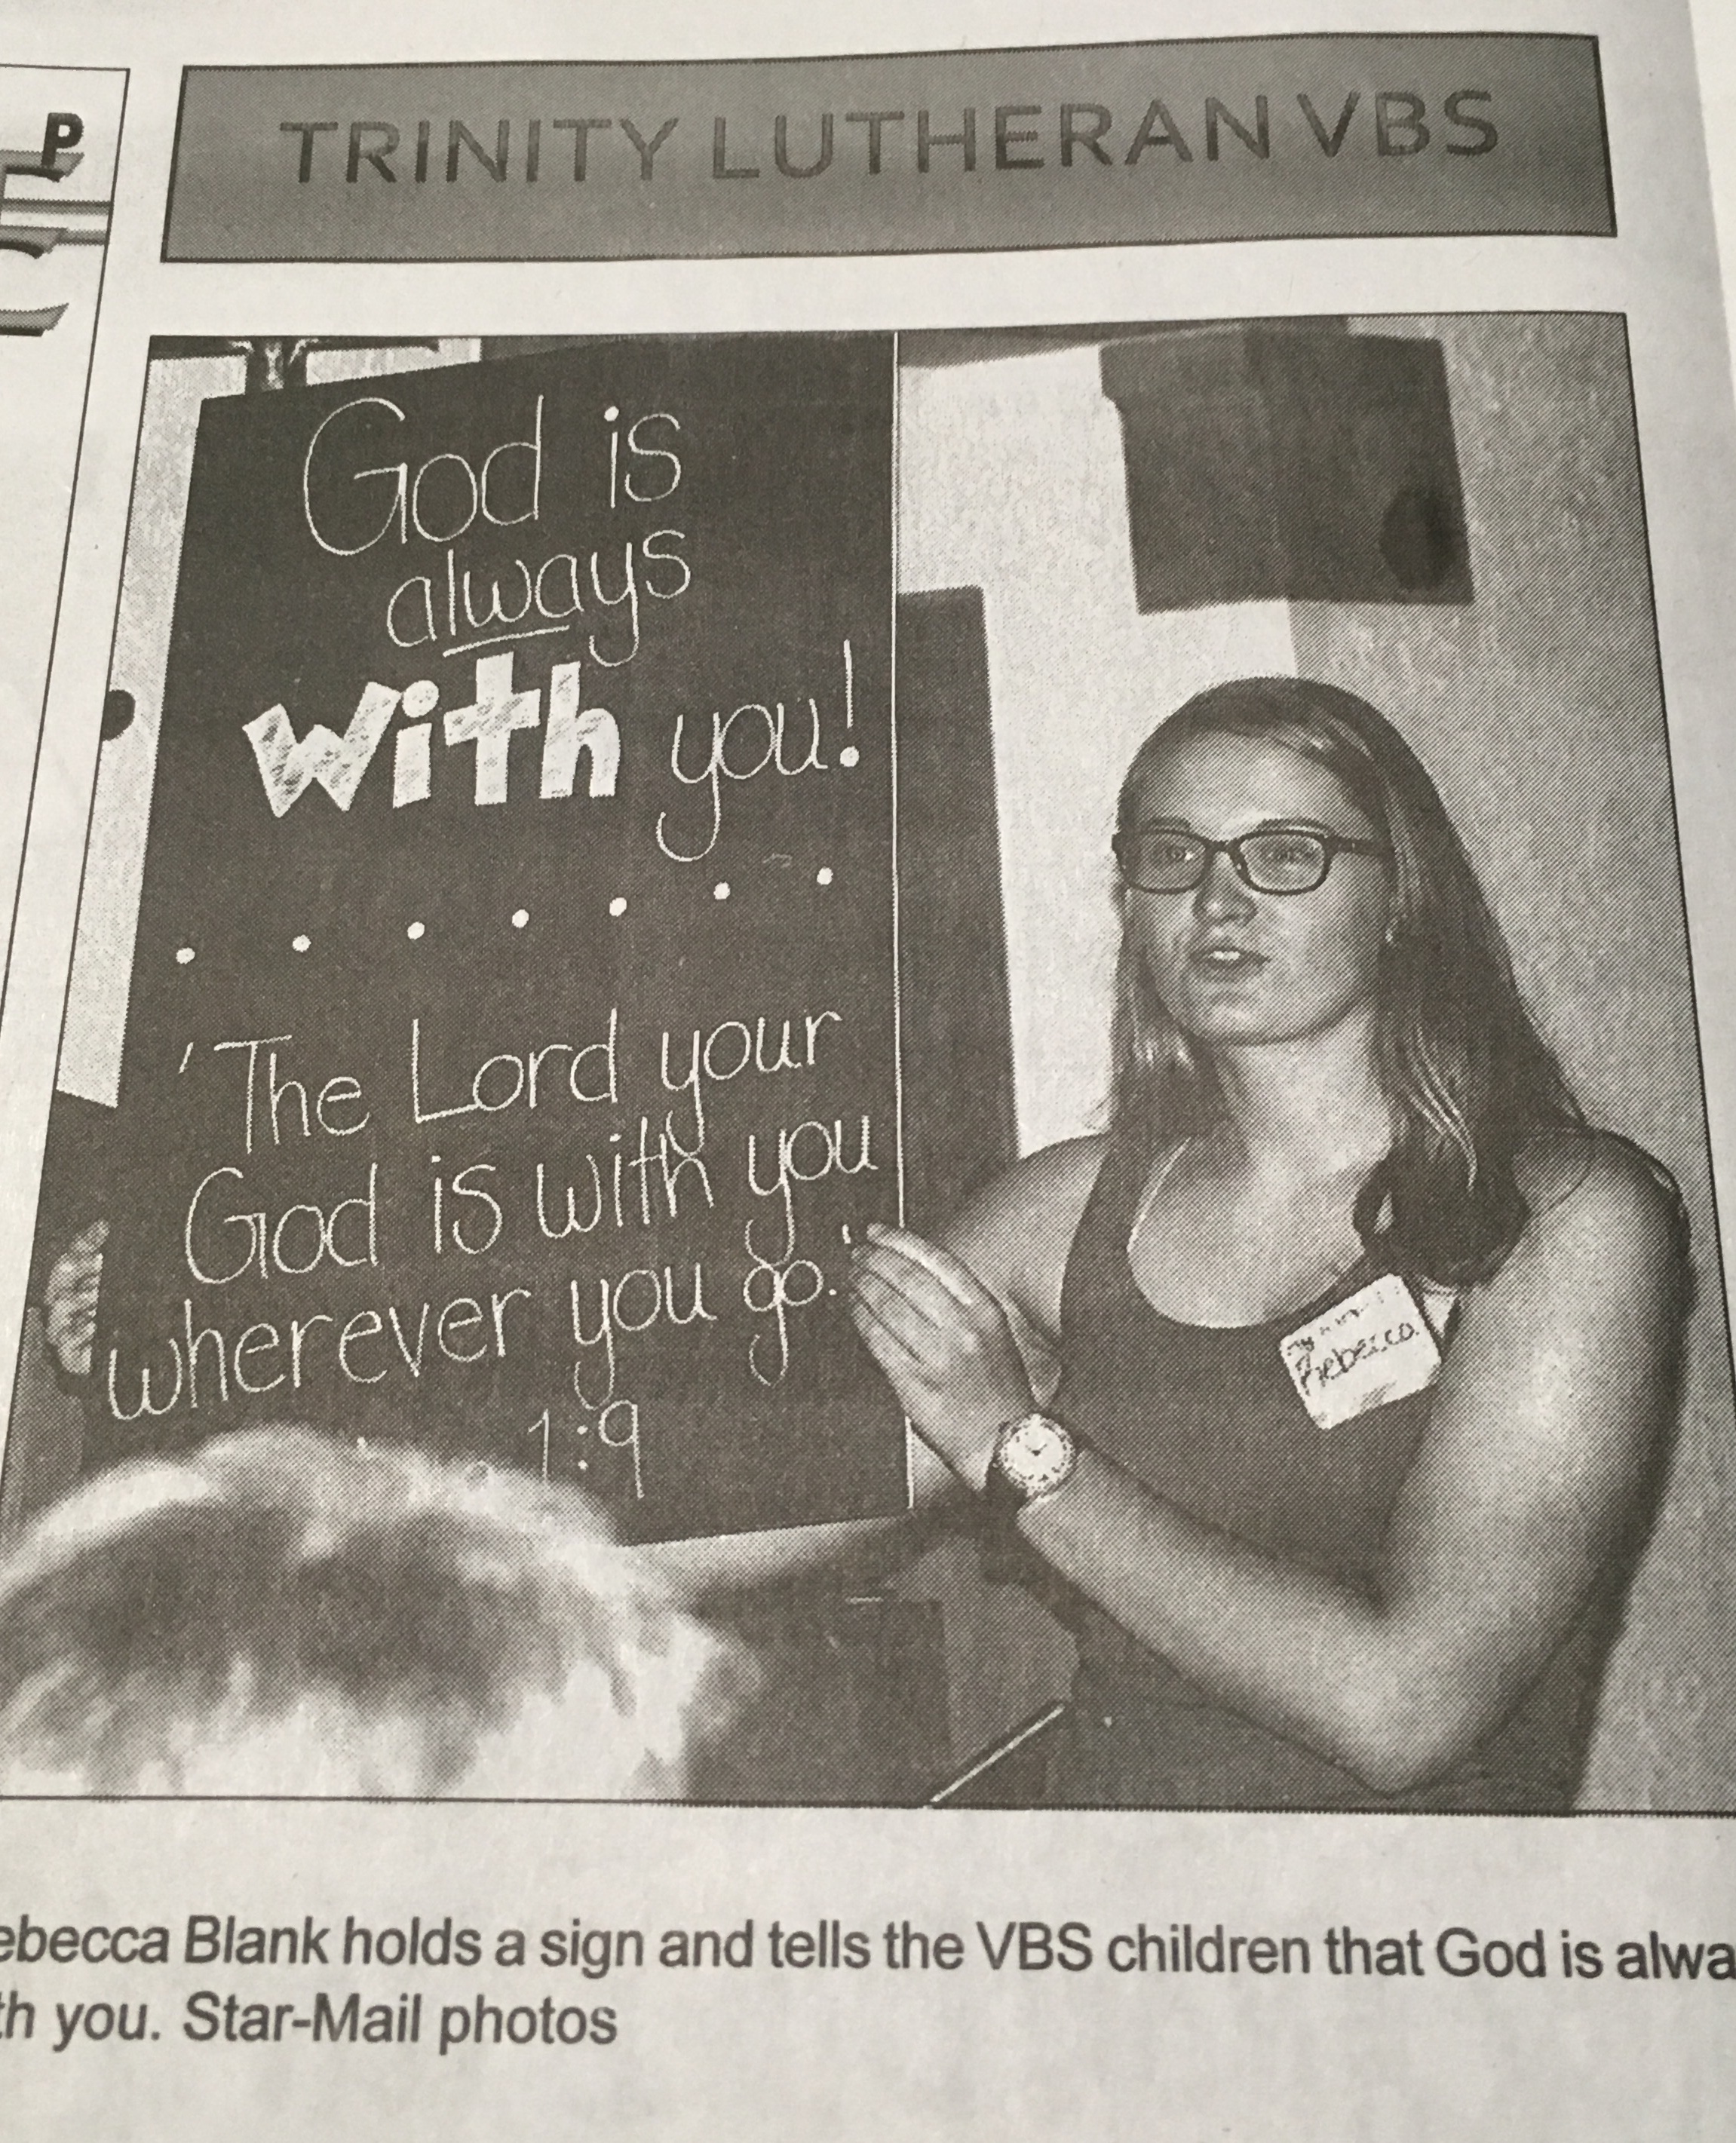 P
TRINITY LUTHERAN VBS
God is
always
with you!
'The Lord your
God is with you
wherever you go.'
1:9
Rebecca
ebecca Blank holds a sign and tells the VBS children that God is alwa
th you. Star-Mail photos